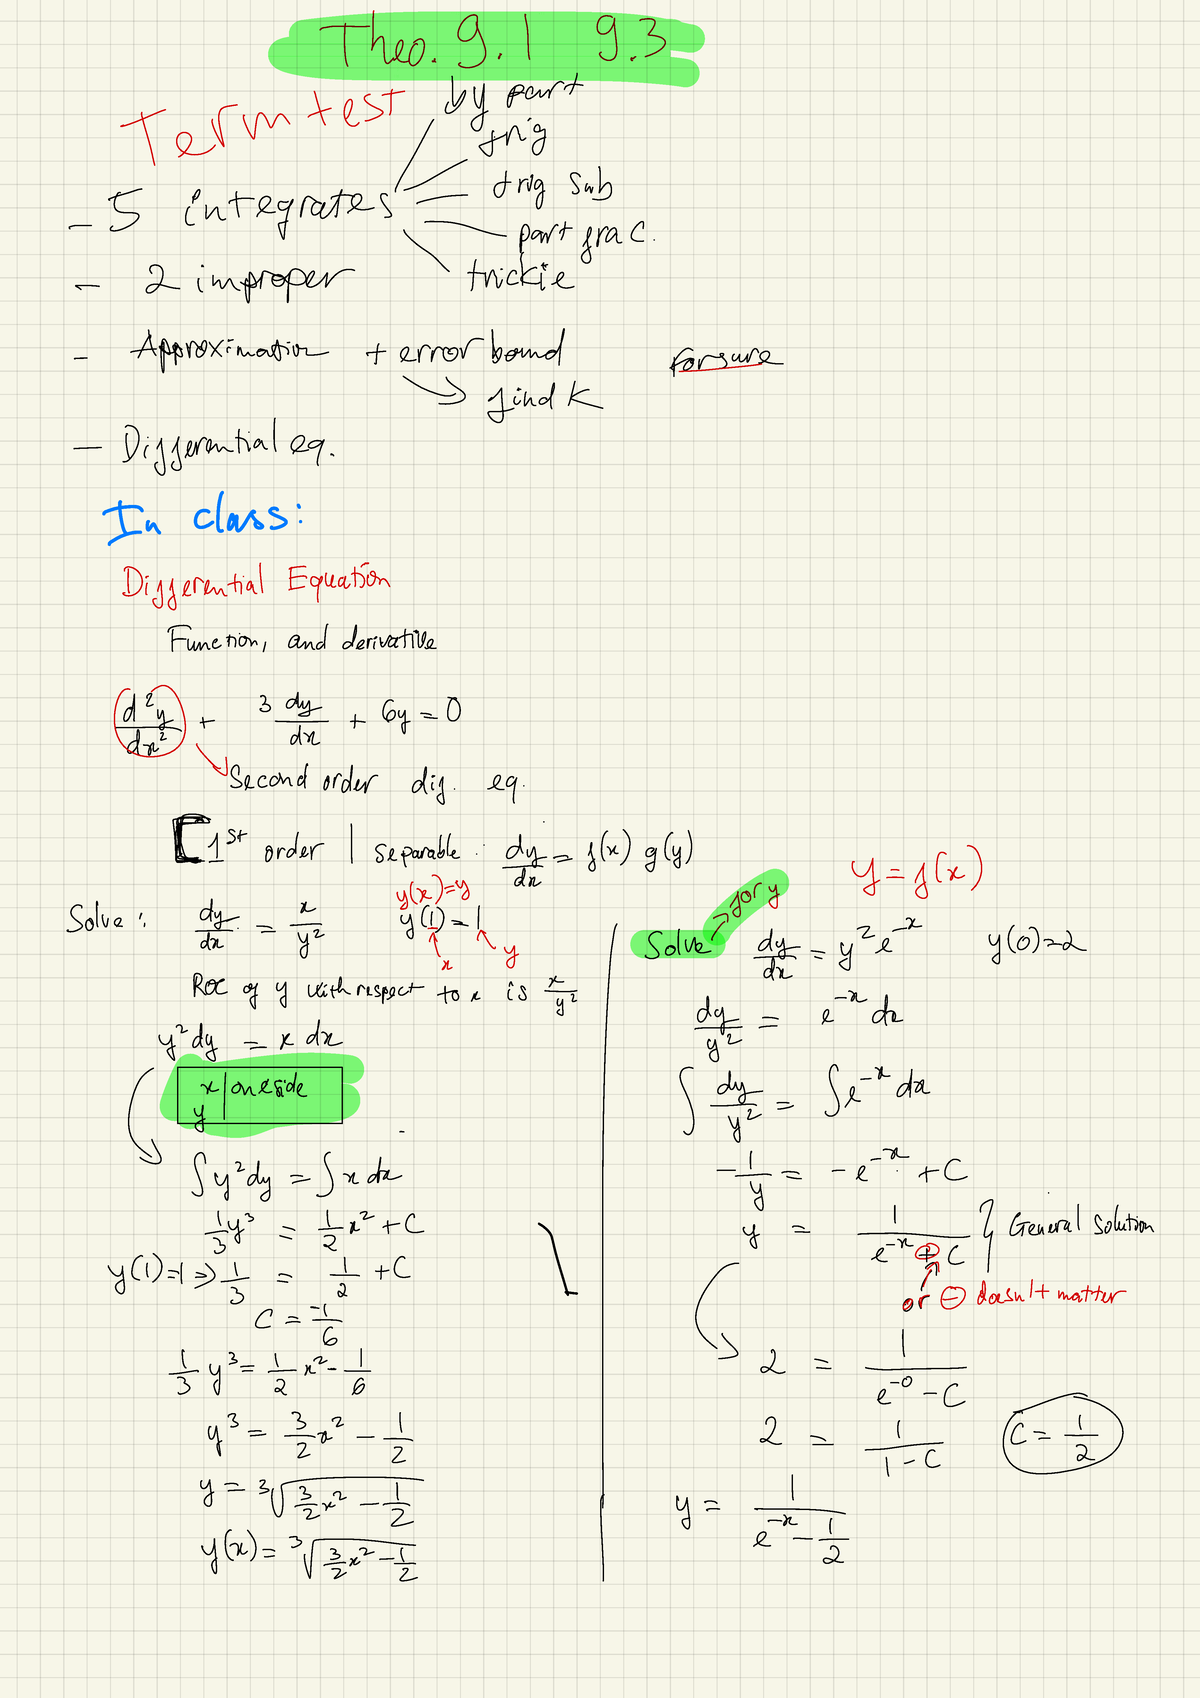 Theo. 9.1 9.3
Term test
by part
trig
- 5 integrates
trig sub
part frac.
- 2 improper
trickie
- Approximation + error bound
forsure
find K
- Differential eq.
In class:
Differential Equation
Function, and derivative
d²y/dx² + 3 dy/dx + 6y = 0
Second order dif. eq.
[1st order | separable : dy/dx = f(x) g(y)
y = f(x)
Solve : dy/dx = x/y²
y(x)=y
y(1) = 1
x
y
ROC of y with respect to x is x/y²
y²dy = x dx
x | one side
y
∫y²dy = ∫x dx
1/3 y³ = 1/2 x² + C
y(1)=1 => 1/3 = 1/2 + C
C = -1/6
1/3 y³ = 1/2 x² - 1/6
y³ = 3/2 x² - 1/2
y = ³√(3/2 x² - 1/2)
y(x) = ³√(3/2 x² - 1/2)
Solve → for y
dy/dx = y² e^-x y(0)=2
dy/y² = e^-x dx
∫ dy/y² = ∫e^-x dx
-1/y = -e^-x + C
y = 1/(e^-x + C) } General Solution
or ⊖ doesn't matter
2 = 1/(e^-0 - C)
2 = 1/(1 - C)
C = 1/2
y = 1/(e^-x - 1/2)